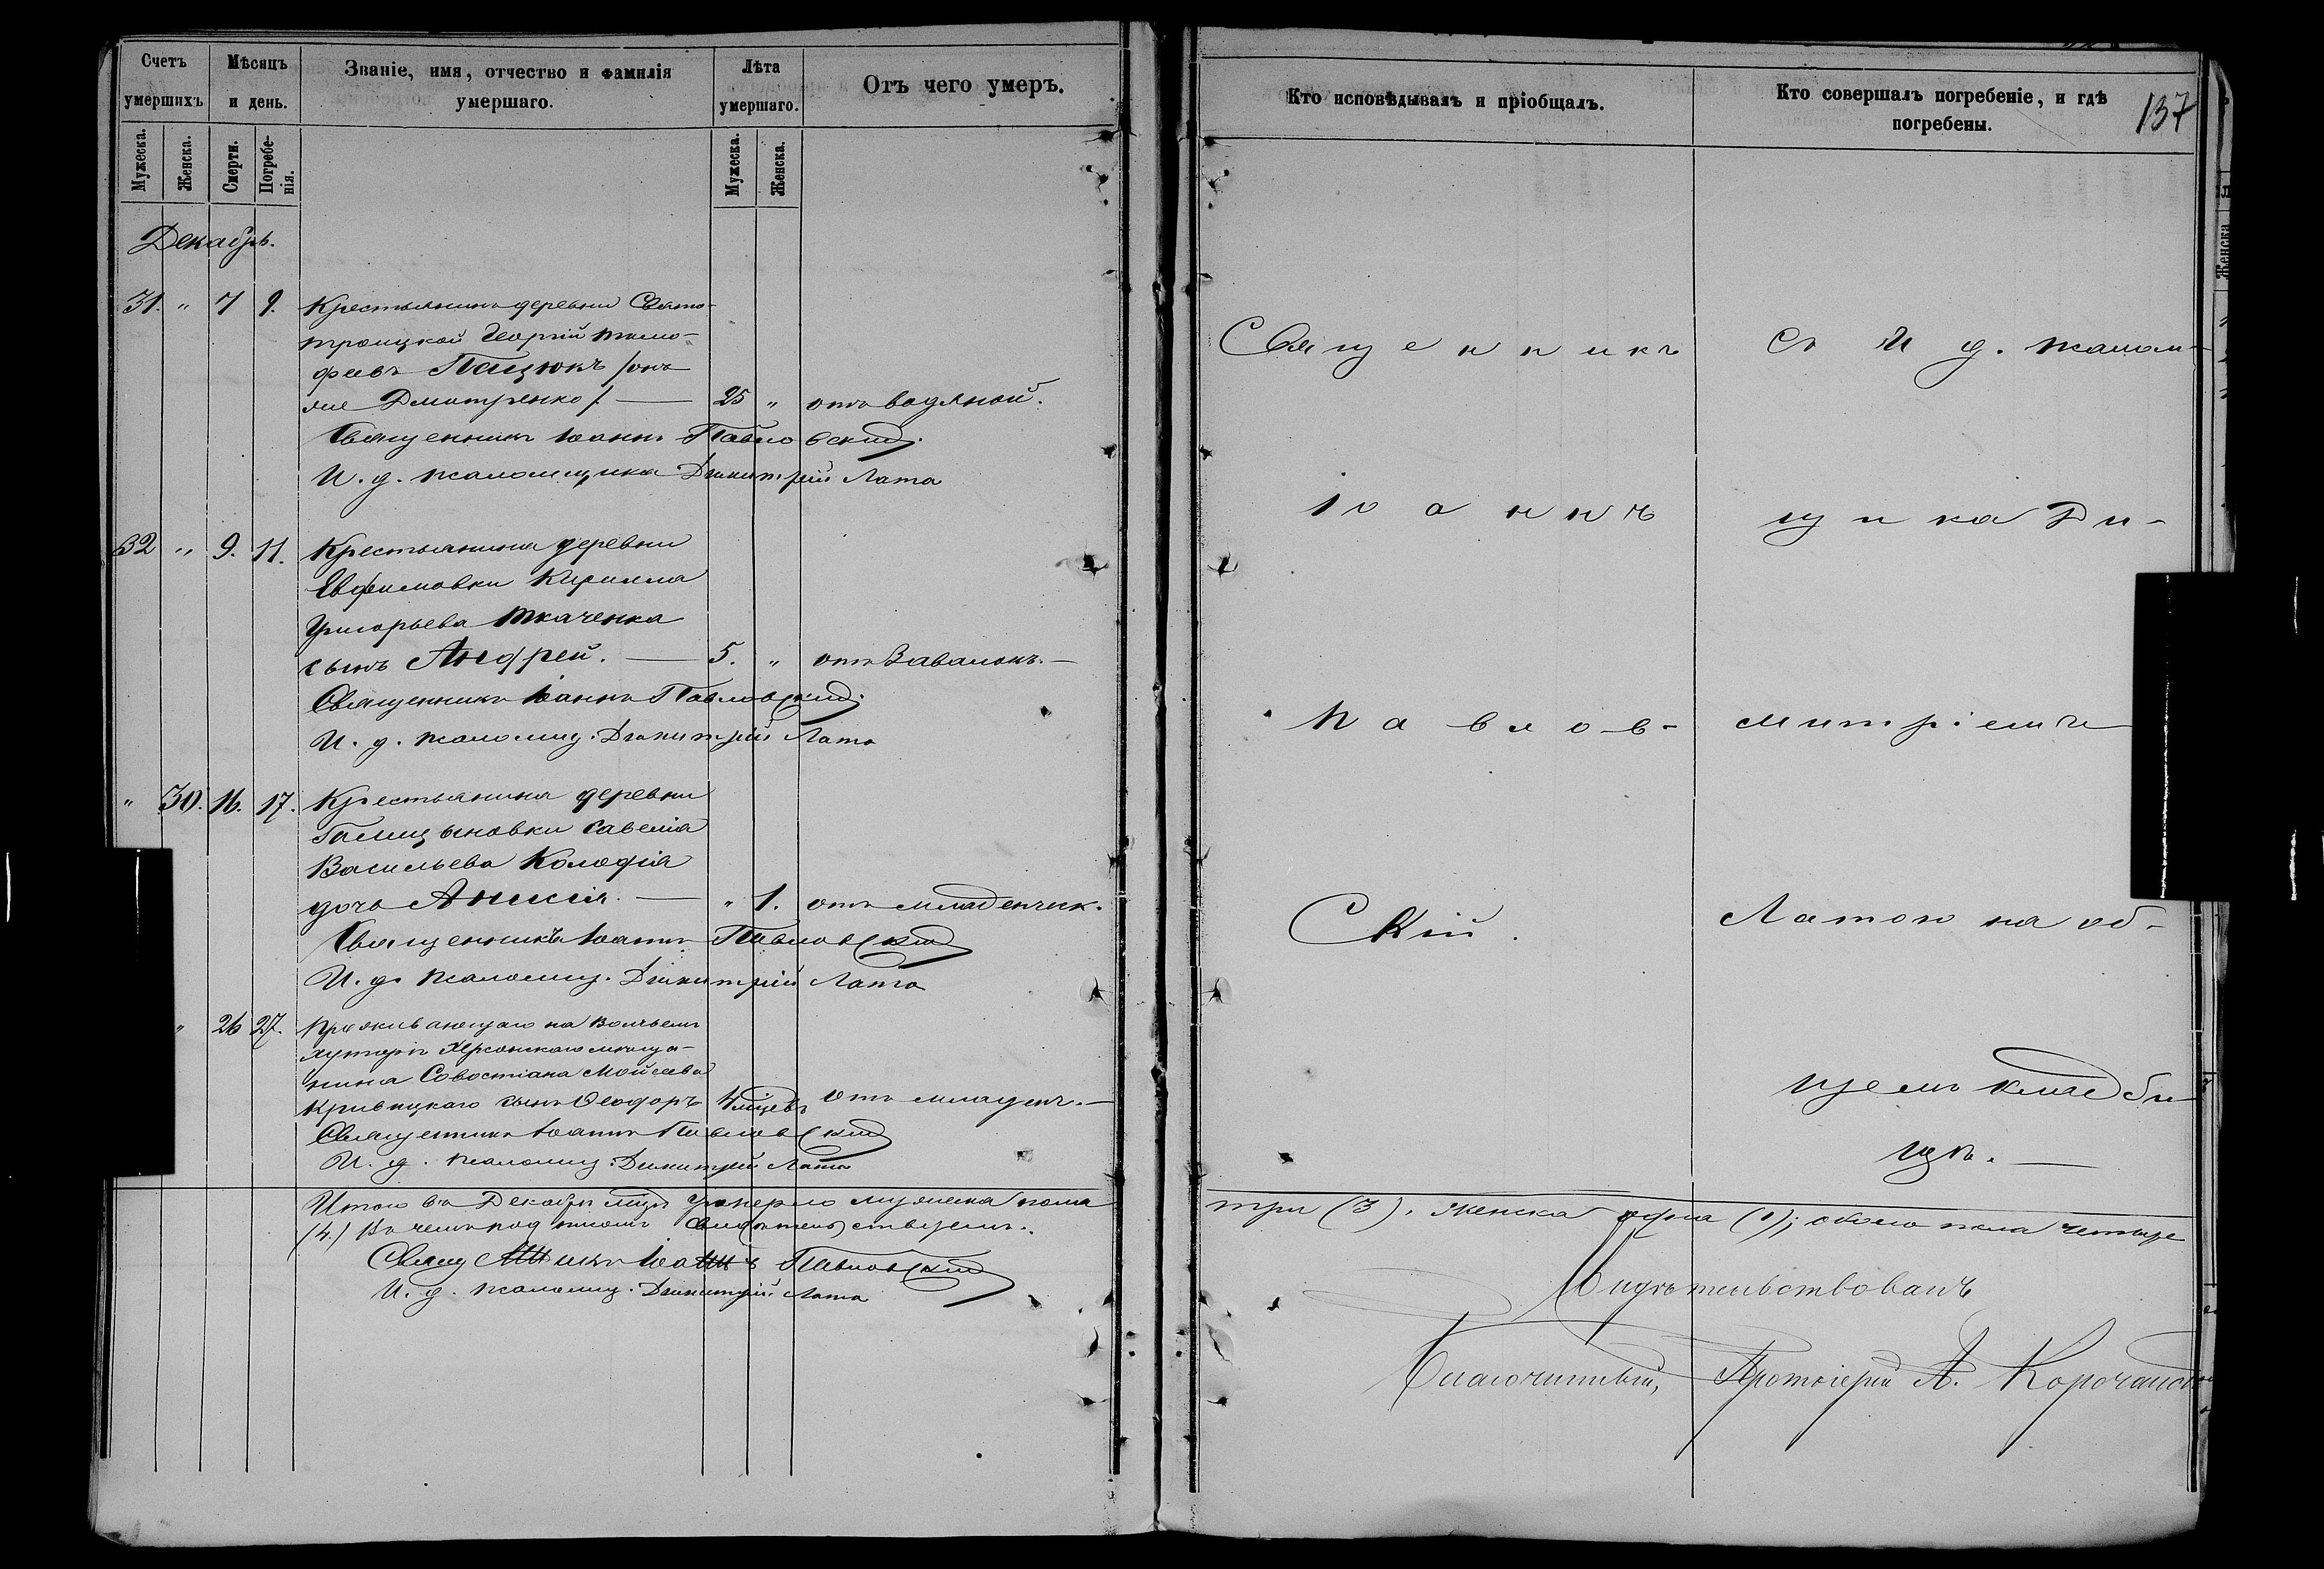 Счетъ умершихъ
Мѣсяцъ и день.
Званіе, имя, отчество и фамилія умершаго.
Лѣта умершаго.
Отъ чего умеръ.
Мужеска.
Женска.
Смерти.
Погребенія.
Мужеска.
Женска.
Декабрь.
31. " 7 9. Крестьянинъ деревни Свято-
троицкой Георгій Тимо-
феевъ Пацюкъ /онъ
же Дмитренко/. — 25 " отъ водяной.
Священникъ Іоаннъ Павловскій.
И. д. псаломщика Димитрій Лата
32 " 9. 11. Крестьянина деревни
Евфимовки Кирилла
Григорьева Ткаченка
сынъ Андрей. — 5. " отъ Завалокъ. —
Священникъ Іоаннъ Павловскій.
И. д. псаломщ. Димитрій Лата
" 30. 16. 17. Крестьянина деревни
Галицыновки Савелія
Васильева Колодія
дочь Анисія. — " 1. отъ младенческ.
Священникъ Іоаннъ Павловскій
И. д. псаломщ. Димитрій Лата
" 26 27. Проживающаго на
хуторѣ Херсонскаго мѣща-
нина Совостіана Мойсеева
Кривицкаго сынъ Ѳеодоръ 4 мѣцевъ отъ младенч. —
Священникъ Іоаннъ Павловскій
И. д. псаломщ. Димитрій Лата
Итого въ Декабрѣ мцѣ умерло мужеска пола
(4.) Въ чемъ подписомъ свидѣтельствуемъ.
Священникъ Іоаннъ Павловскій
И. д. псаломщ. Димитрій Лата
Кто исповѣдывалъ и пріобщалъ.
Кто совершалъ погребеніе, и гдѣ погребены.
137
Священникъ
Іоаннъ
Павлов-
скій.
Съ И. д. псалом-
щика Ди-
митріемъ
Латою на об-
щемъ кладби
щѣ. —
три (3), женска одна (1); обоего пола четыре
Свидѣтельствовалъ
Благочинный, Протоіерей А.
Женска